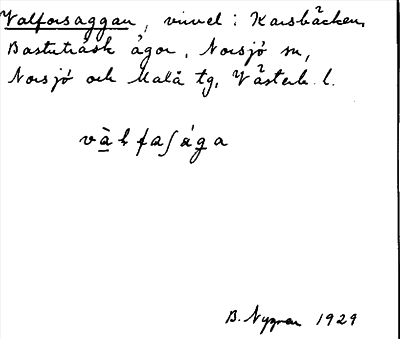 Valforsaggan, vinvel: Karsbäcken,
Bastuträsk ägor, Norsjö sn,
Norsjö och Malå tg, Västerb. l.
B. Nygren 1929